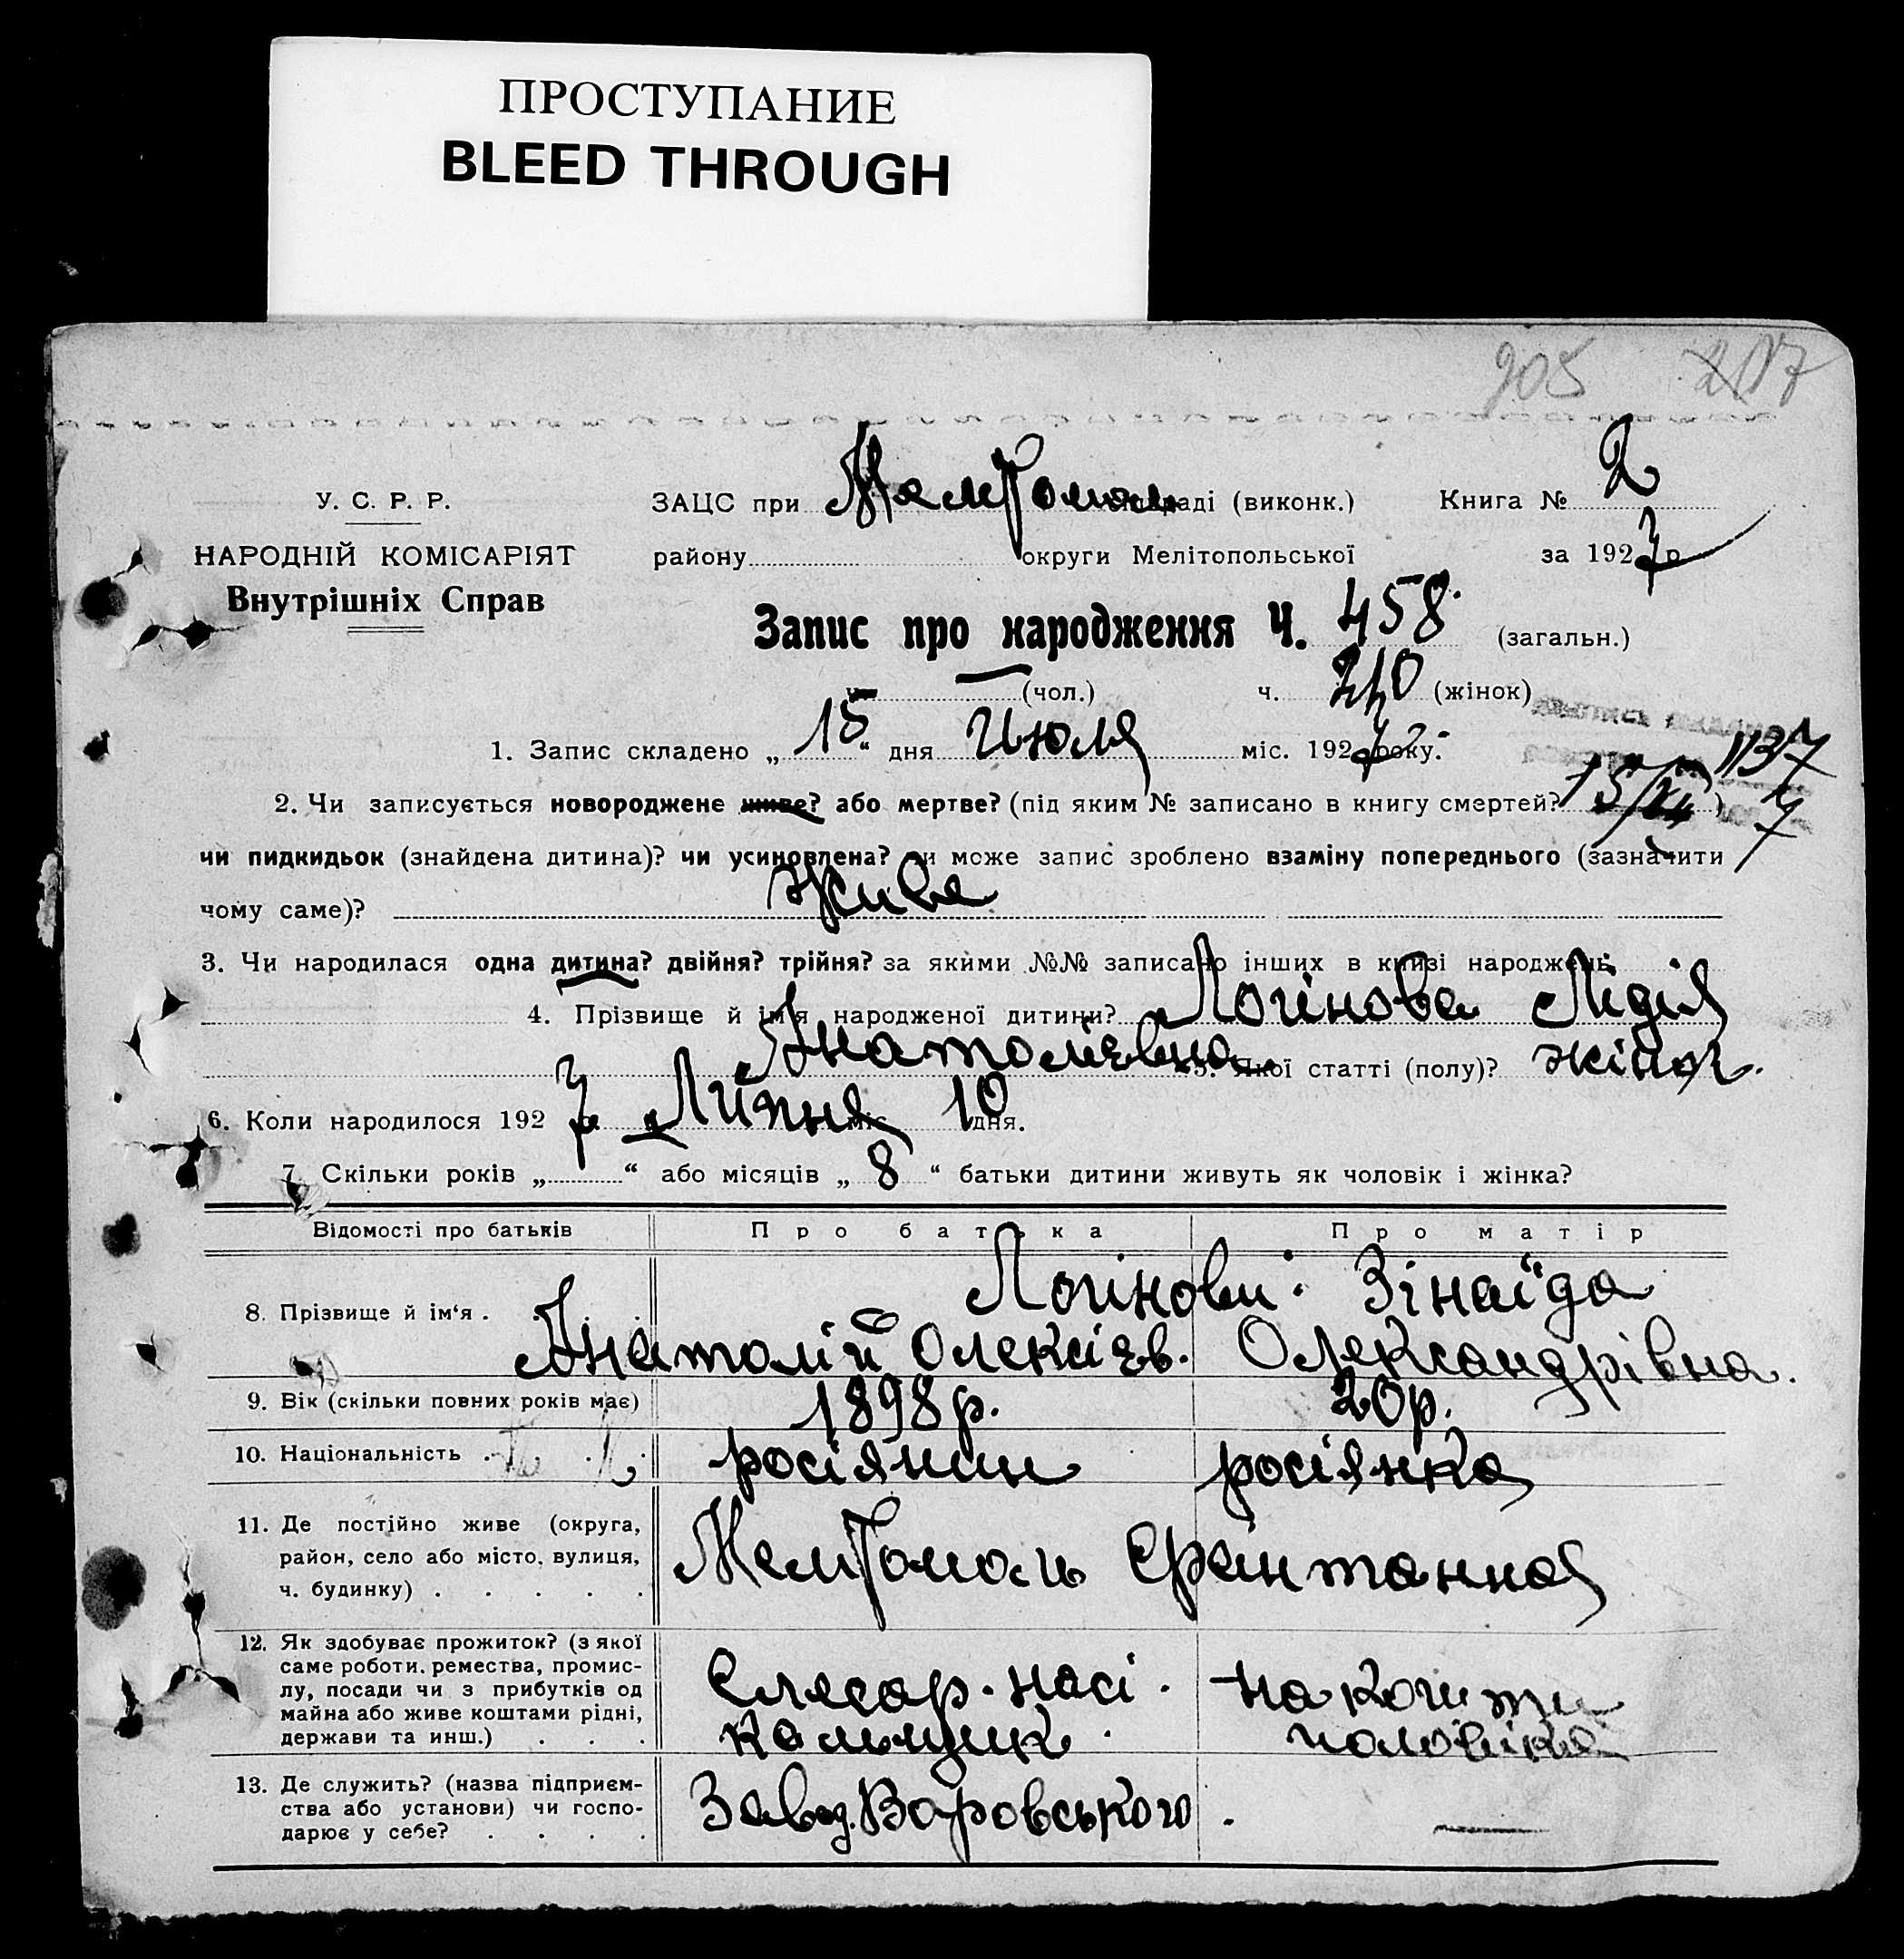 ПРОСТУПАНИЕ
BLEED THROUGH
205 217
У. С. Р. Р.
НАРОДНІЙ КОМІСАРІЯТ
Внутрішніх Справ
ЗАЦС при раді (виконк.) Книга № 2
району округи Мелітопольської за 1927 р
Запис про народження Ч. 458 (загальн.)
(чол.) ч. 240 (жінок)
1. Запис складено „ 15 “ дня Июля міс. 1927 року.
2. Чи записується новороджене живе? або мертве? (під яким № записано в книгу смертей? )
чи пидкидьок (знайдена дитина)? чи усиновлена? чи може запис зроблено взаміну попереднього (зазначити
чому саме)? Живе
3. Чи народилася одна дитина? двійня? трійня? за якими №№ записано інших в книзі народжень
4. Прізвище й ім'я народженої дитини? Логінова Лідія
Анатоліевна 5. Якої статті (полу)? жіноч.
6. Коли народилося 1927 р. Липня міс 10 дня.
7. Скільки років „ “ або місяців „ 8 “ батьки дитини живуть як чоловік і жінка?
Відомості про батьків Про батька Про матір
8. Прізвище й ім‘я . Логінови. Зінаїда
Анатолій Олексієв. Олександрівна.
9. Вік (скільки повних років має) 1898 р. 20 р.
10. Національність . . . росіянин росіянка
11. Де постійно живе (округа,
район, село або місто, вулиця,
ч. будинку) . . . . .
12. Як здобуває прожиток? (з якої
саме роботи, ремества, промис-
лу, посади чи з прибутків од
майна або живе коштами рідні,
держави та инш.) . . .
Слесар. насі
кальщик. чоловіка
13. Де служить? (назва підприєм-
ства або установи) чи госпо-
дарює у себе? . . . .
Завод. Воровського.